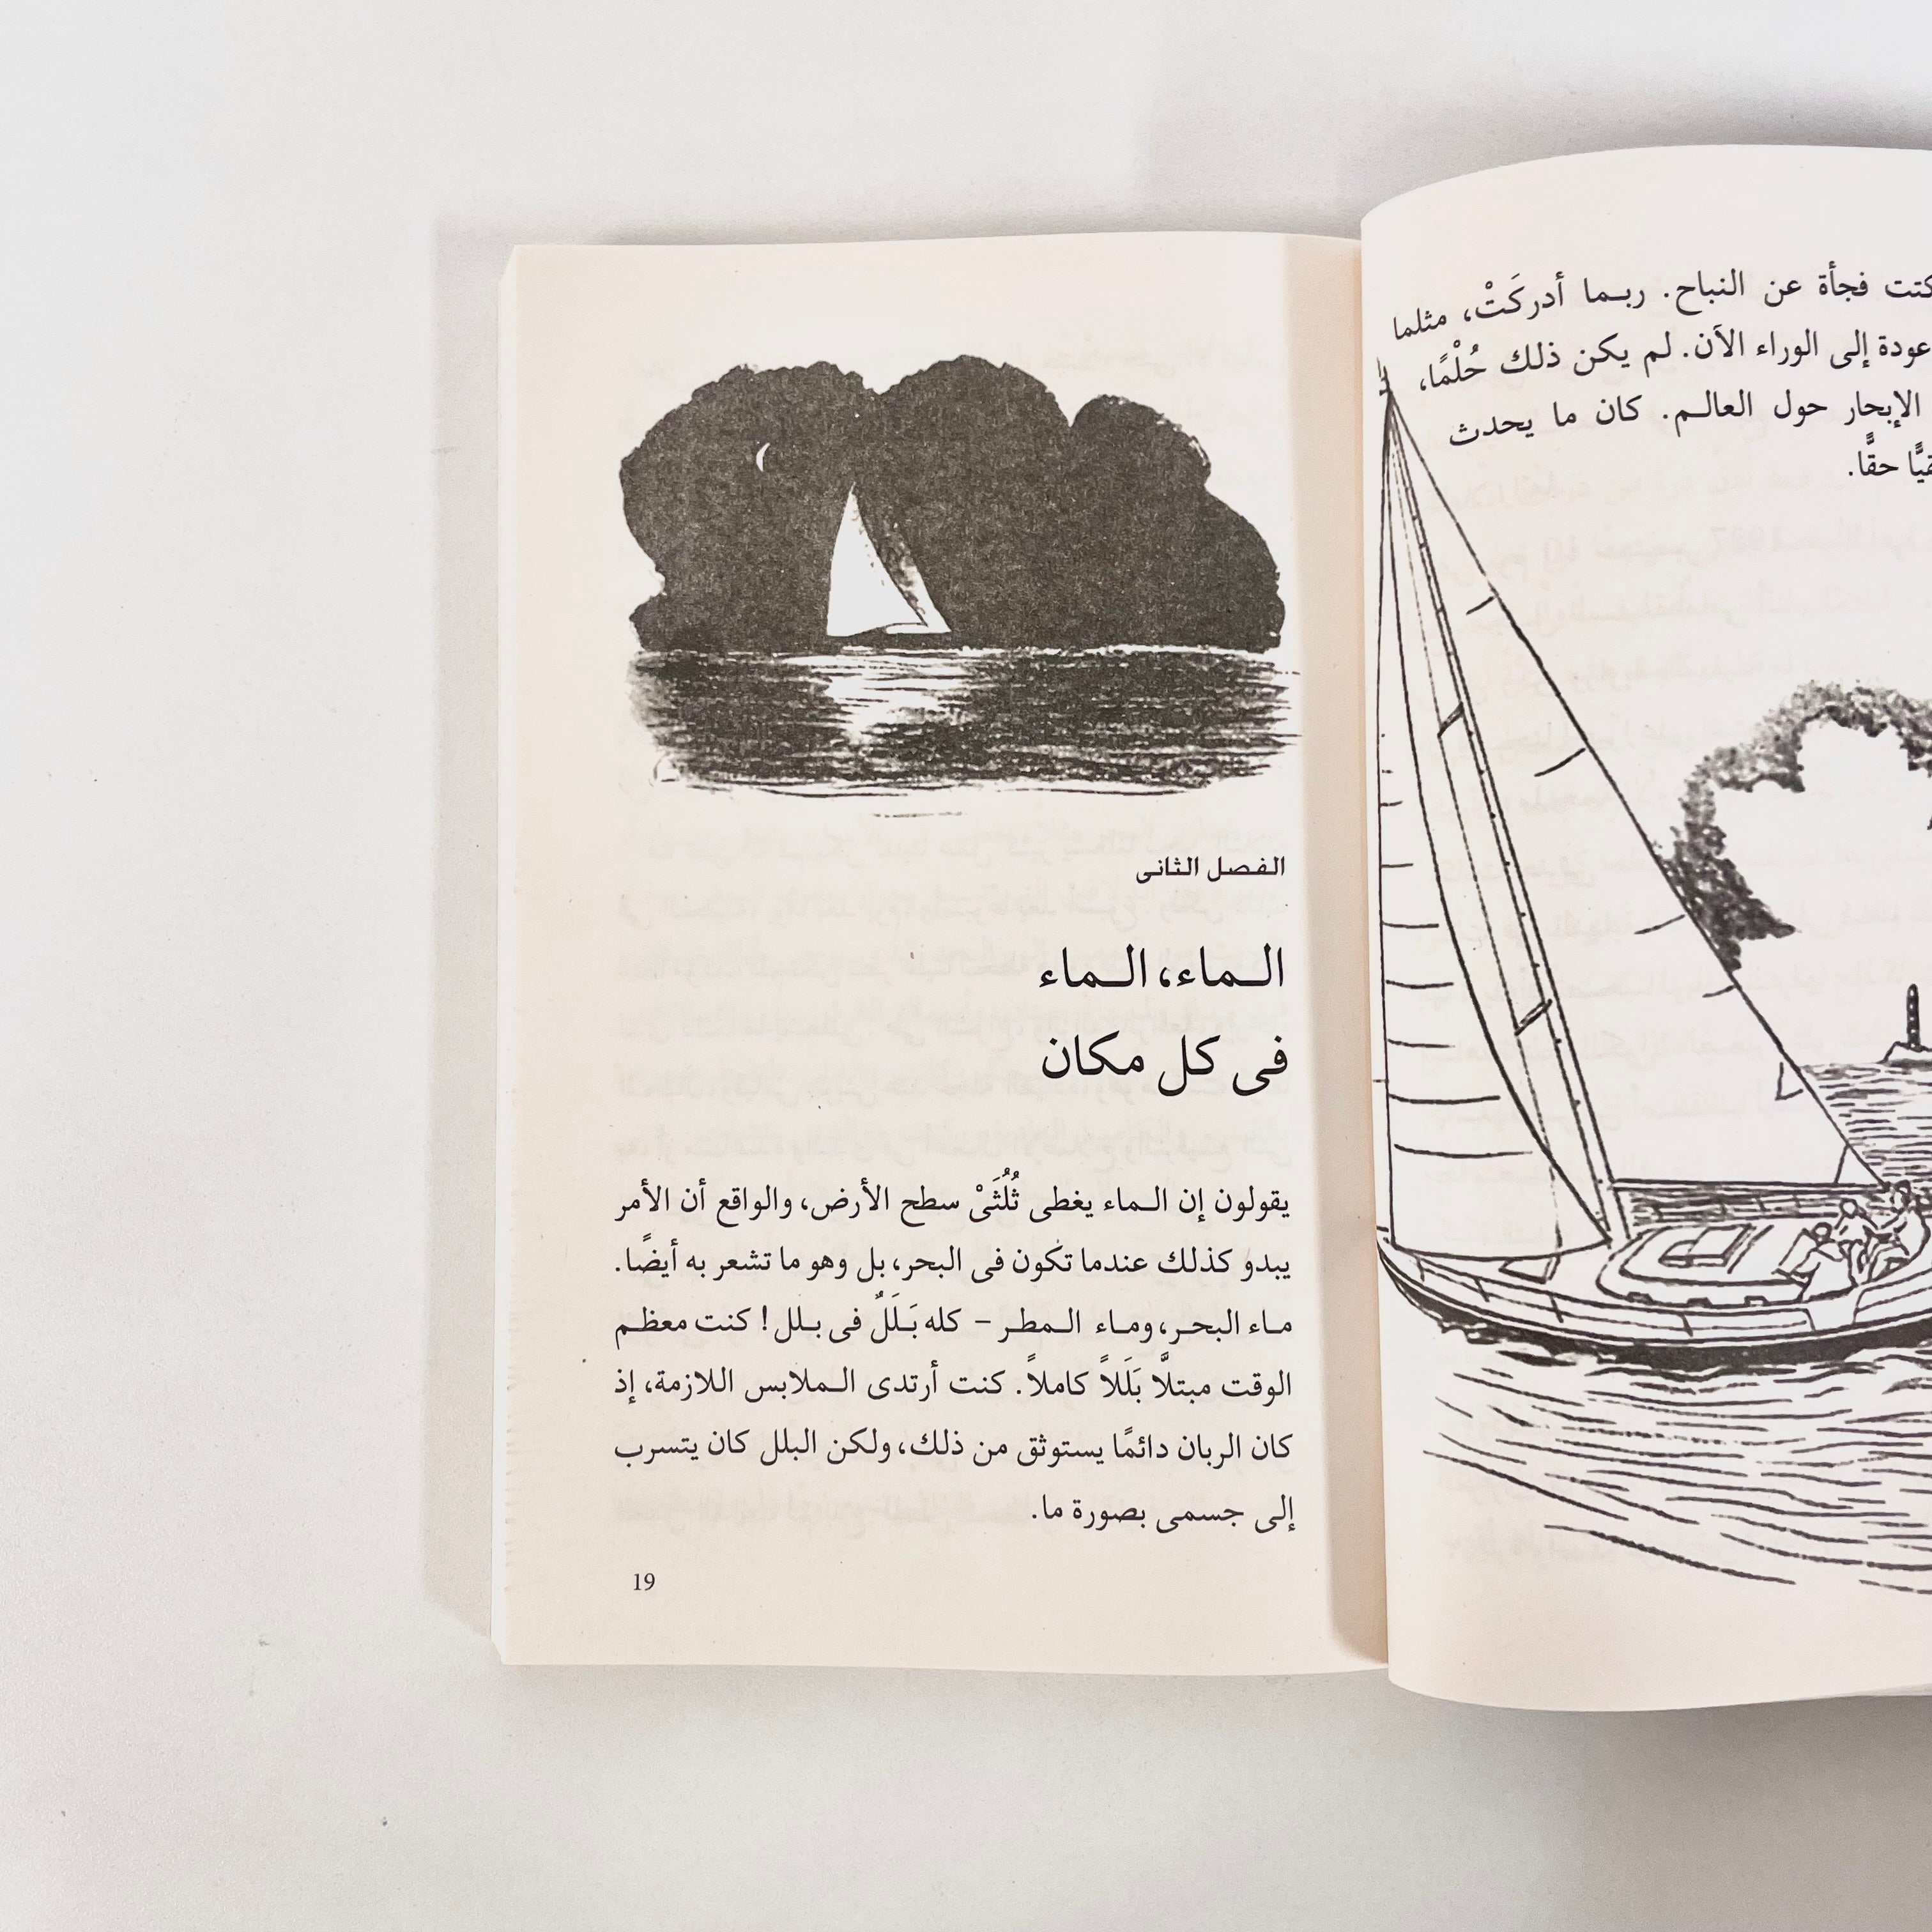 فجأة عن النباح. ربـما أدركَتْ، مثلما
عودة إلى الوراء الآن. لم يكن ذلك حُلْمًا،
الإبحار حول العالـم. كان ما يحدث
حقًّا.
الفصل الثانى
الـماء، الـماء
فى كل مكان
يقولون إن الـماء يغطى ثُلُثَىْ سطح الأرض، والواقع أن الأمر
يبدو كذلك عندما تكون فى البحر، بل وهو ما تشعر به أيضًا.
مـاء البحـر، ومـاء الـمطـر – كله بَـلَلٌ فى بـلل! كنت معظـم
الوقت مبتلًّا بَلَلاً كاملاً. كنت أرتدى الـملابس اللازمة، إذ
كان الربان دائمًا يستوثق من ذلك، ولكن البلل كان يتسرب
إلى جسمى بصورة ما.
19